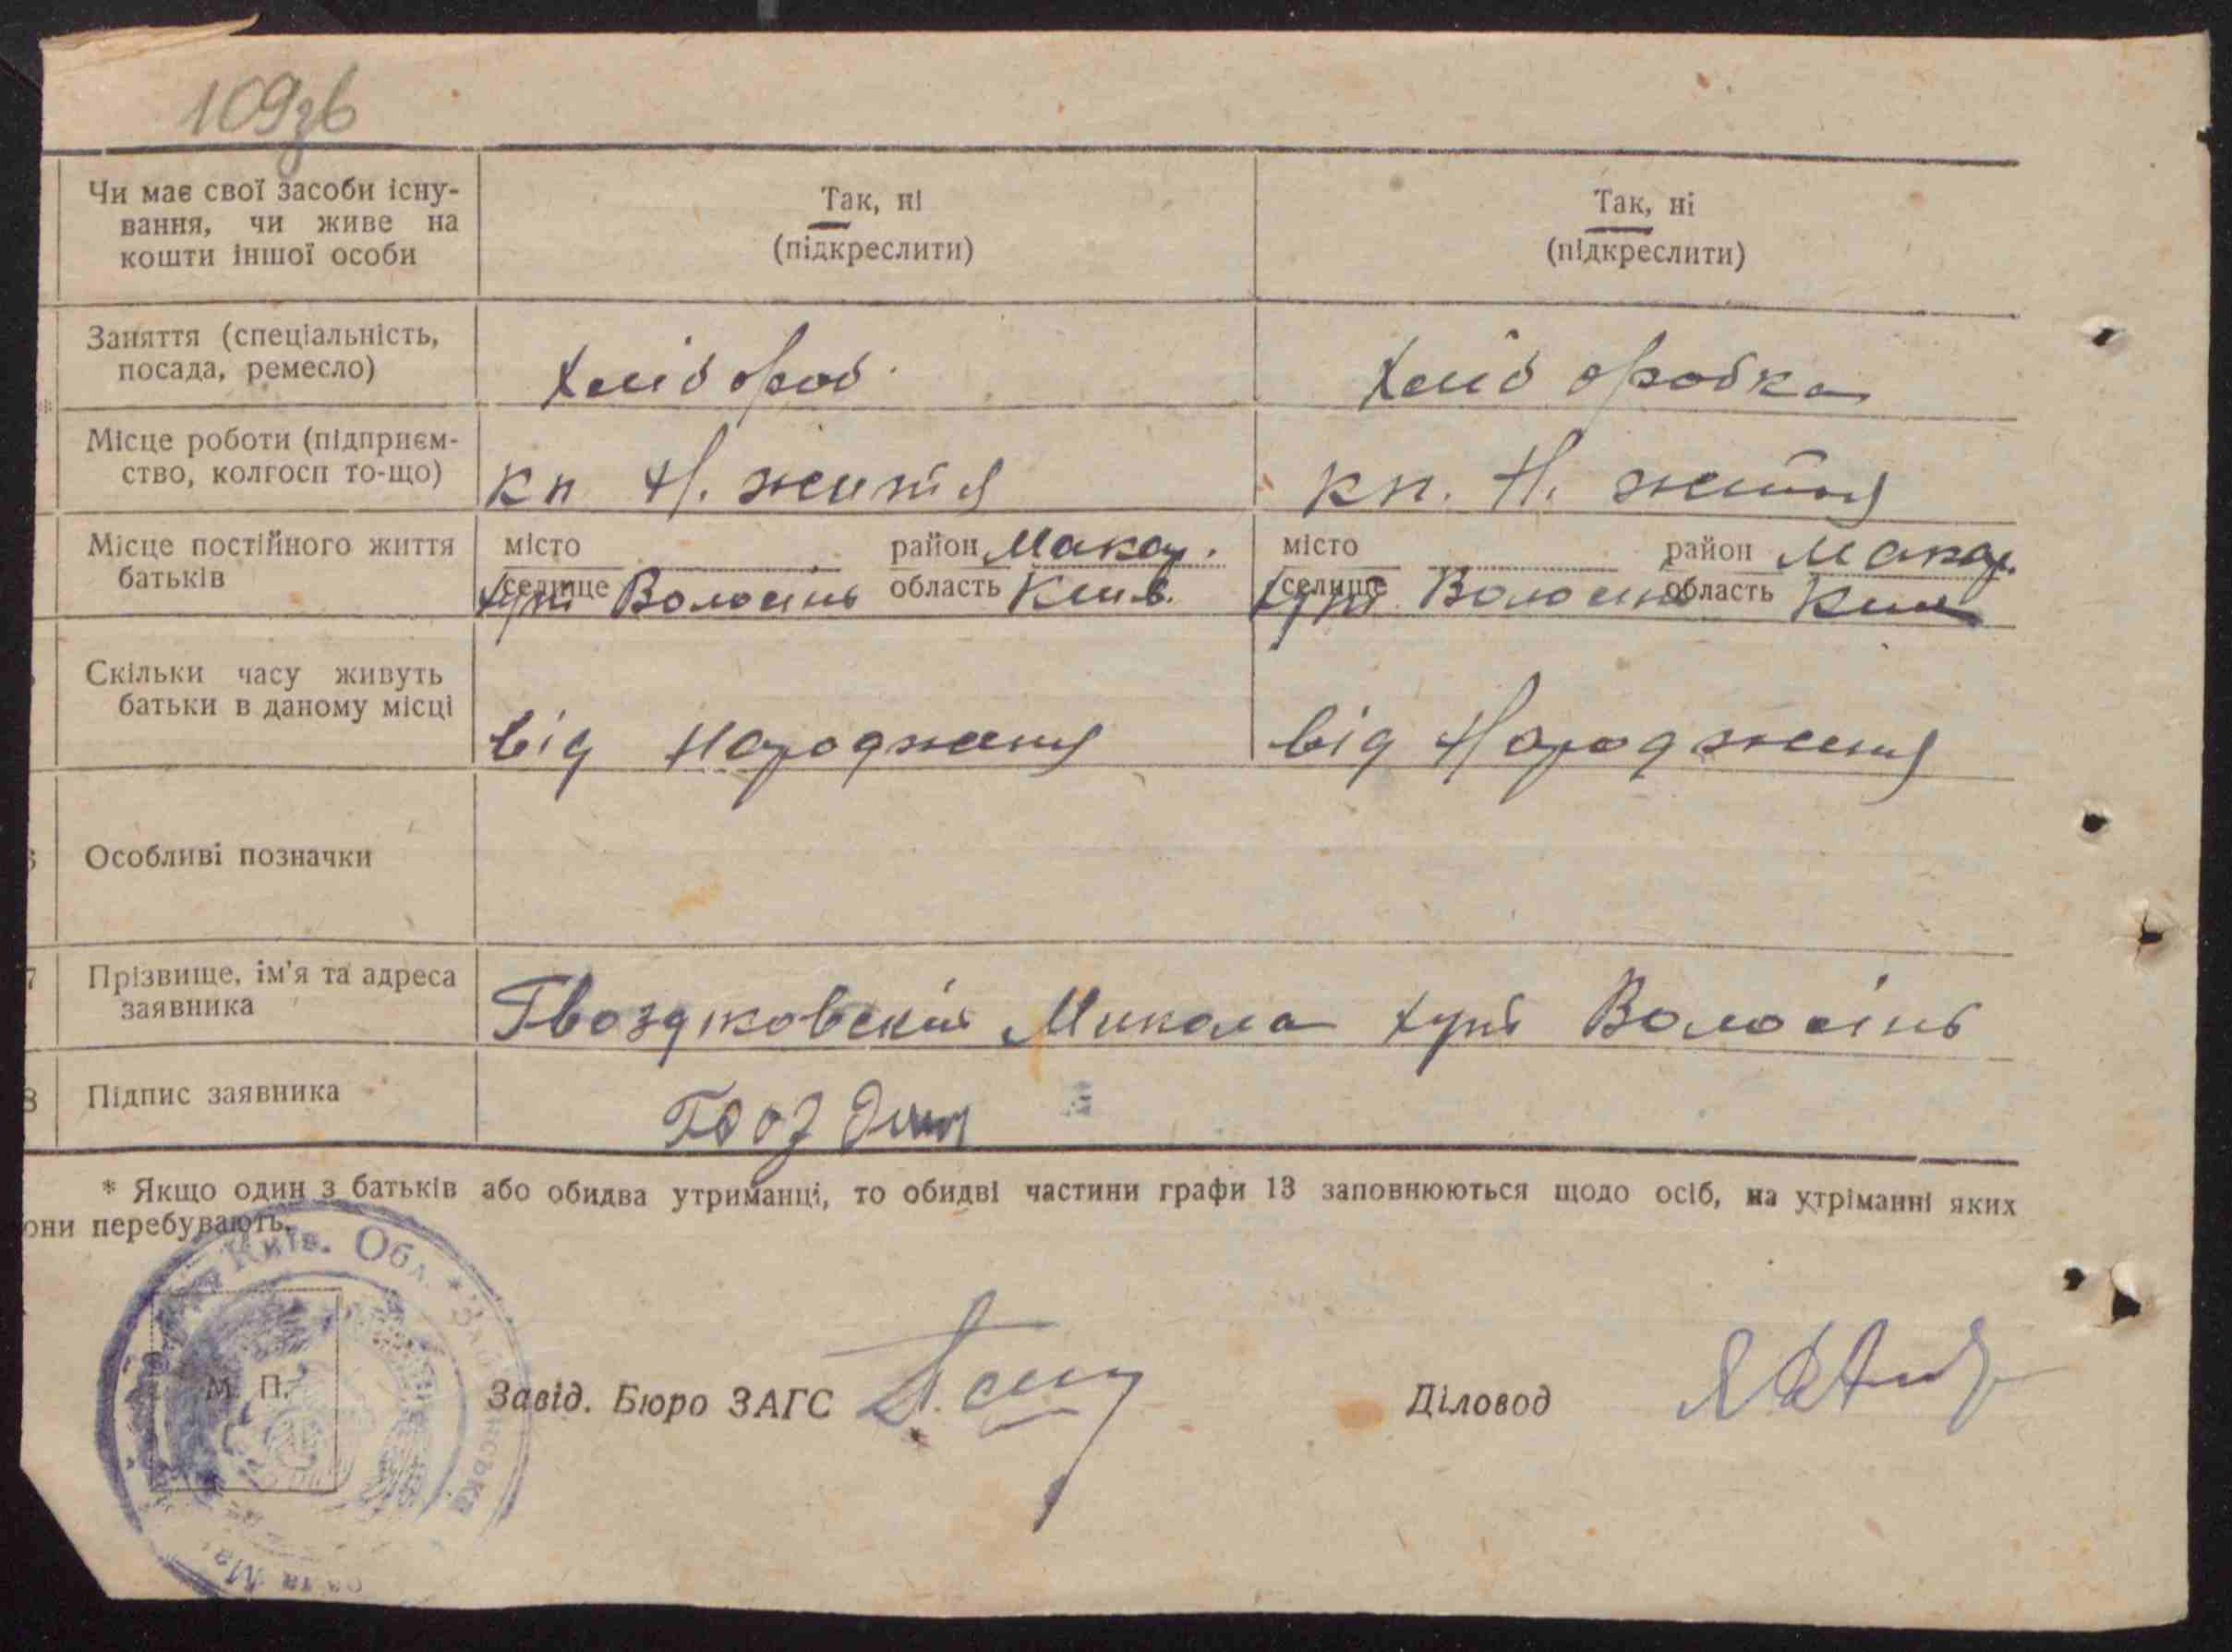 109зв
Чи має свої засоби існу-
вання, чи живе на
кошти іншої особи
Так, ні
(підкреслити)
Так, ні
(підкреслити)
Заняття (спеціальність,
посада, ремесло)
хлібороб.
хліборобка
Місце роботи (підприєм-
ство, колгосп то-що)
кп Н. життя
кп. Н. життя
Місце постійного життя
батьків
місто район Макар.
селище хут Волосінь область Київ.
місто район Макар.
селище хут. Волосінь область Київ
Скільки часу живуть
батьки в даному місці
від народженя
від народженя
6 Особливі позначки
7 Прізвище, ім'я та адреса
заявника
Гвоздиковскій Микола хут Волосінь
8 Підпис заявника
* Якщо один з батьків або обидва утриманці, то обидві частини графи 13 заповнюються щодо осіб, на утріманні яких
они перебувають.
Київ. Обл. *
М. П.
Завід. Бюро ЗАГС
Діловод